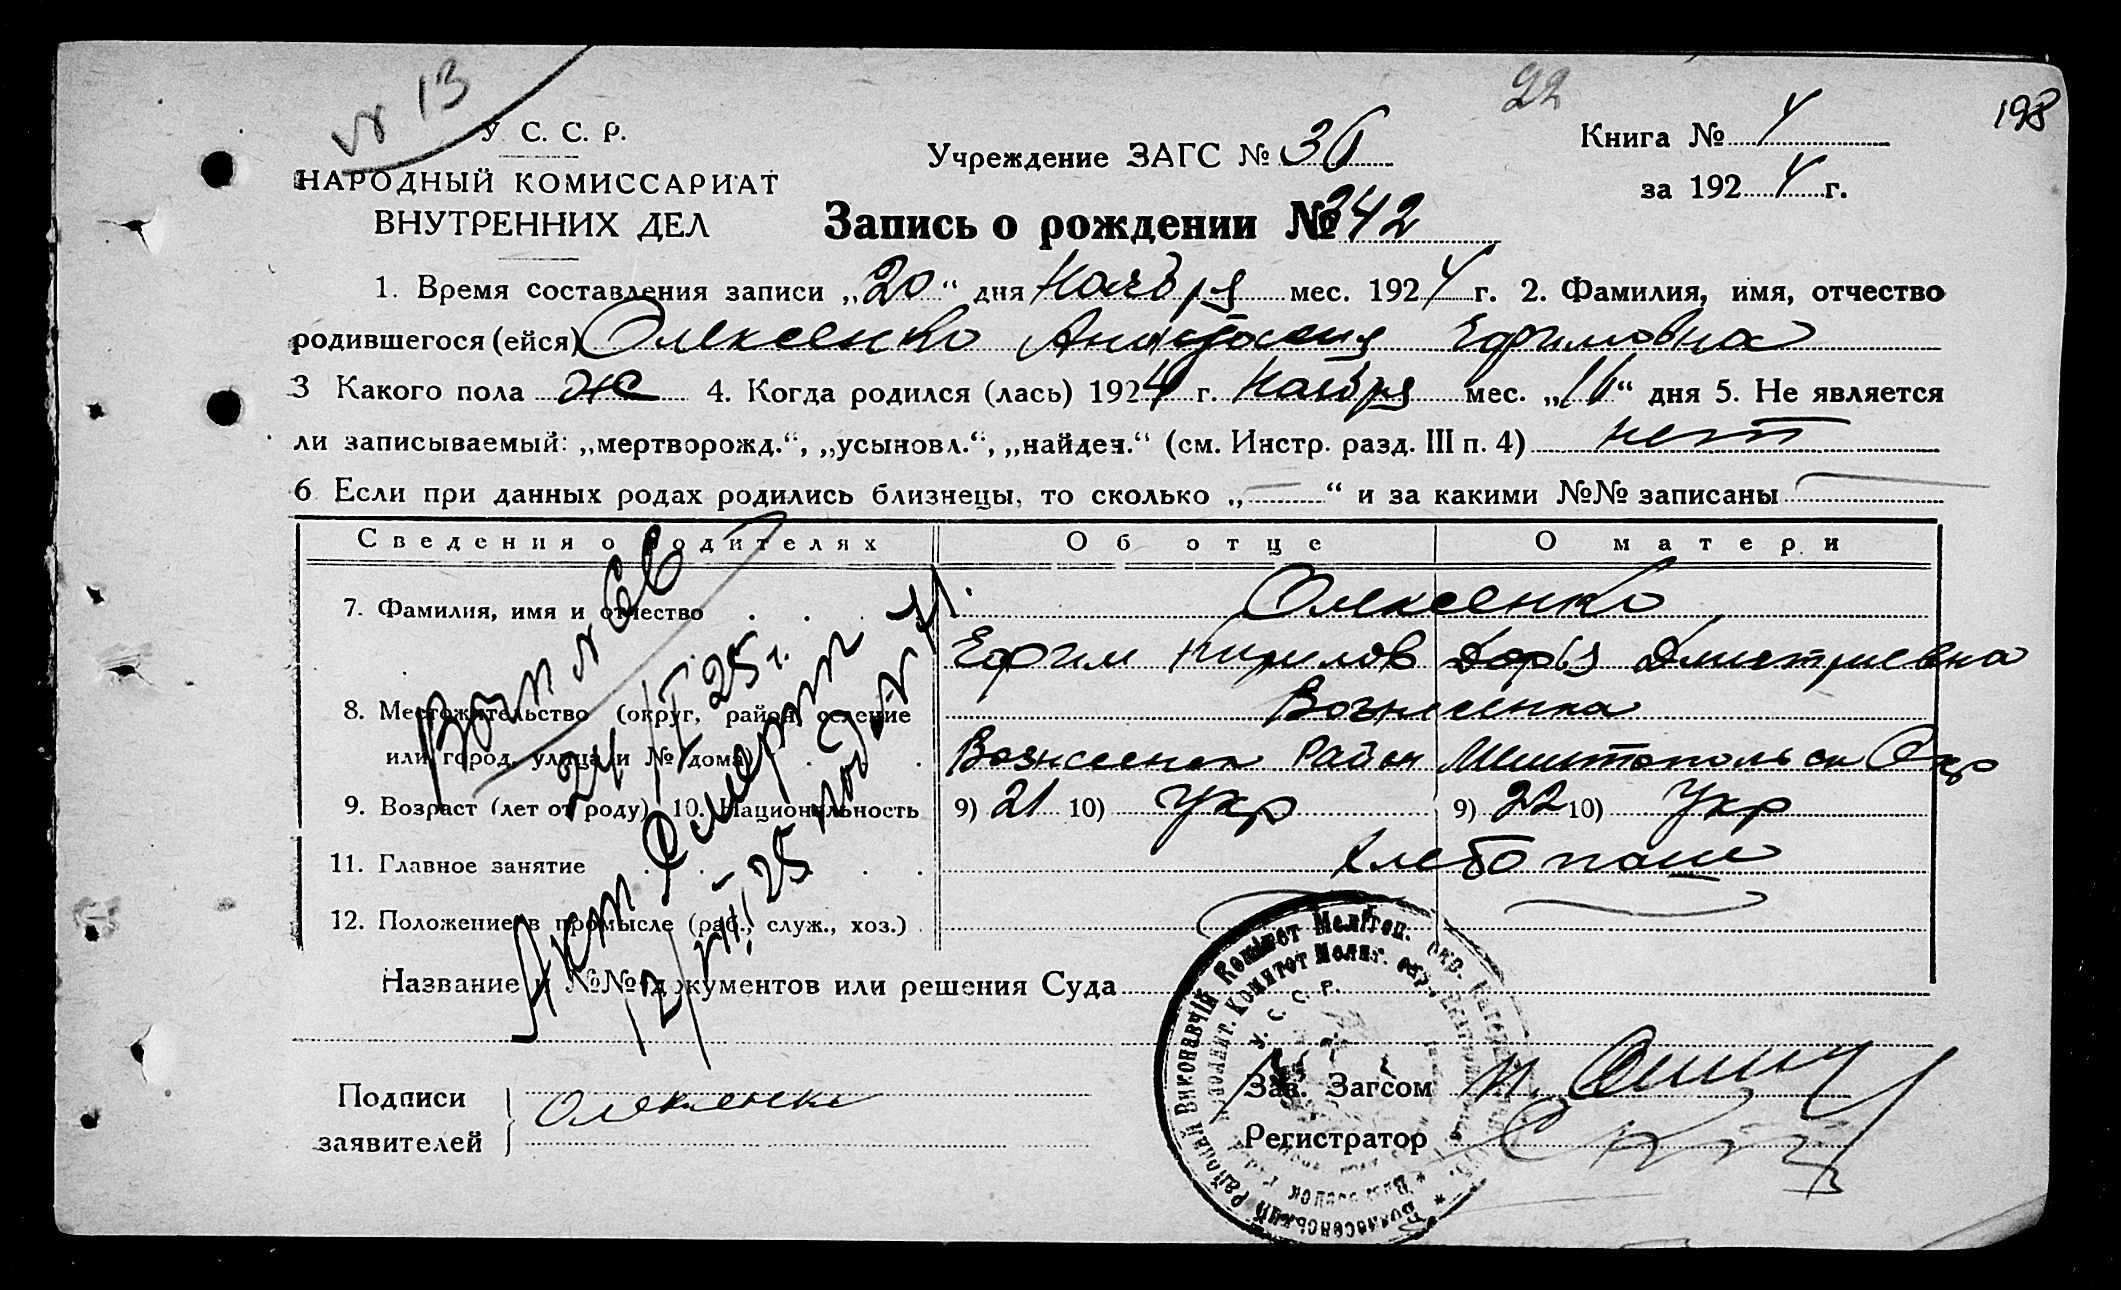 № 13
22
198
У. С. С. Р.
НАРОДНЫЙ КОМИССАРИАТ
ВНУТРЕННИХ ДЕЛ
Учреждение ЗАГС № 36
Книга № 4
за 1924 г.
Запись о рождении № 342
1. Время составления записи „20“ дня Ноября мес. 1924 г. 2. Фамилия, имя, отчество
родившегося (ейся) Олексенко Анастасия Ефимовна
3 Какого пола ж 4. Когда родился (лась) 1924 г. Ноября мес. „16“ дня 5. Не является
ли записываемый: „мертворожд.“, „усыновл.“, „найден.“ (см. Инстр. разд. III п. 4) нет
6 Если при данных родах родились близнецы, то сколько „ “ и за какими №№ записаны
Сведения о родителях Об отце О матери
7. Фамилия, имя и отчество Олексенко
Ефим Кирилов Дарья Дмитриевна
8. Местожительство (округ, район, селение Вознесенка
или город, улица и № дома) Вознесенск Район Мелитопольск Окр
9. Возраст (лет от роду) 10. Национальность 9) 21 10) Укр 9) 22 10) Укр
11. Главное занятие Хлебопаш
12. Положение в промысле (раб., служ., хоз.)
24/I 25 г.
Акт Смерти
12/VII 25
Название и №№ документов или решения Суда
Подписи
заявителей
Олексенко
Зав. Загсом
Регистратор
Вознесенський Районий Виконавчій Комітет Мелітоп. окр.
Исполнит. Комитет Мелит. окр.
У. С. С. Р.